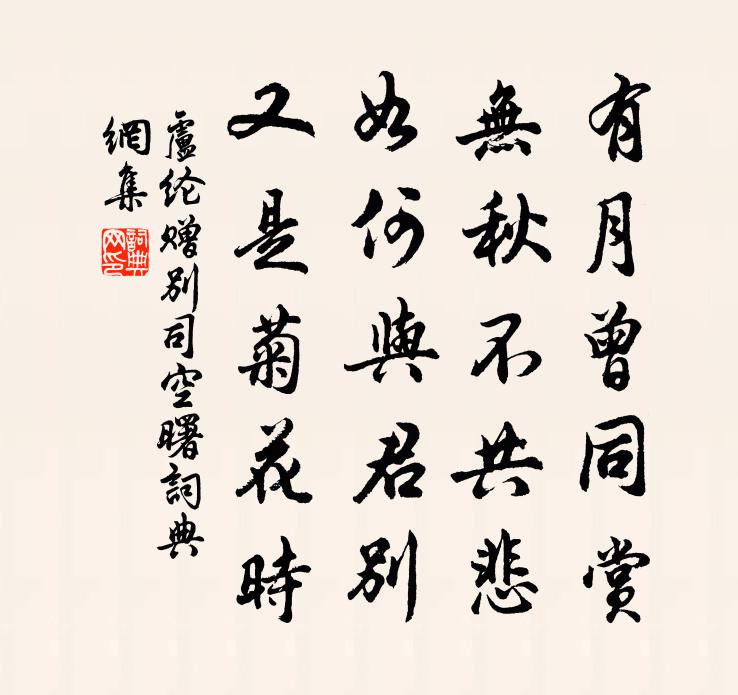 有月曾同賞
無秋不共悲
如何與君別
又是菊花時
盧纶赠別司空曙詞典
網集
詞典
网印